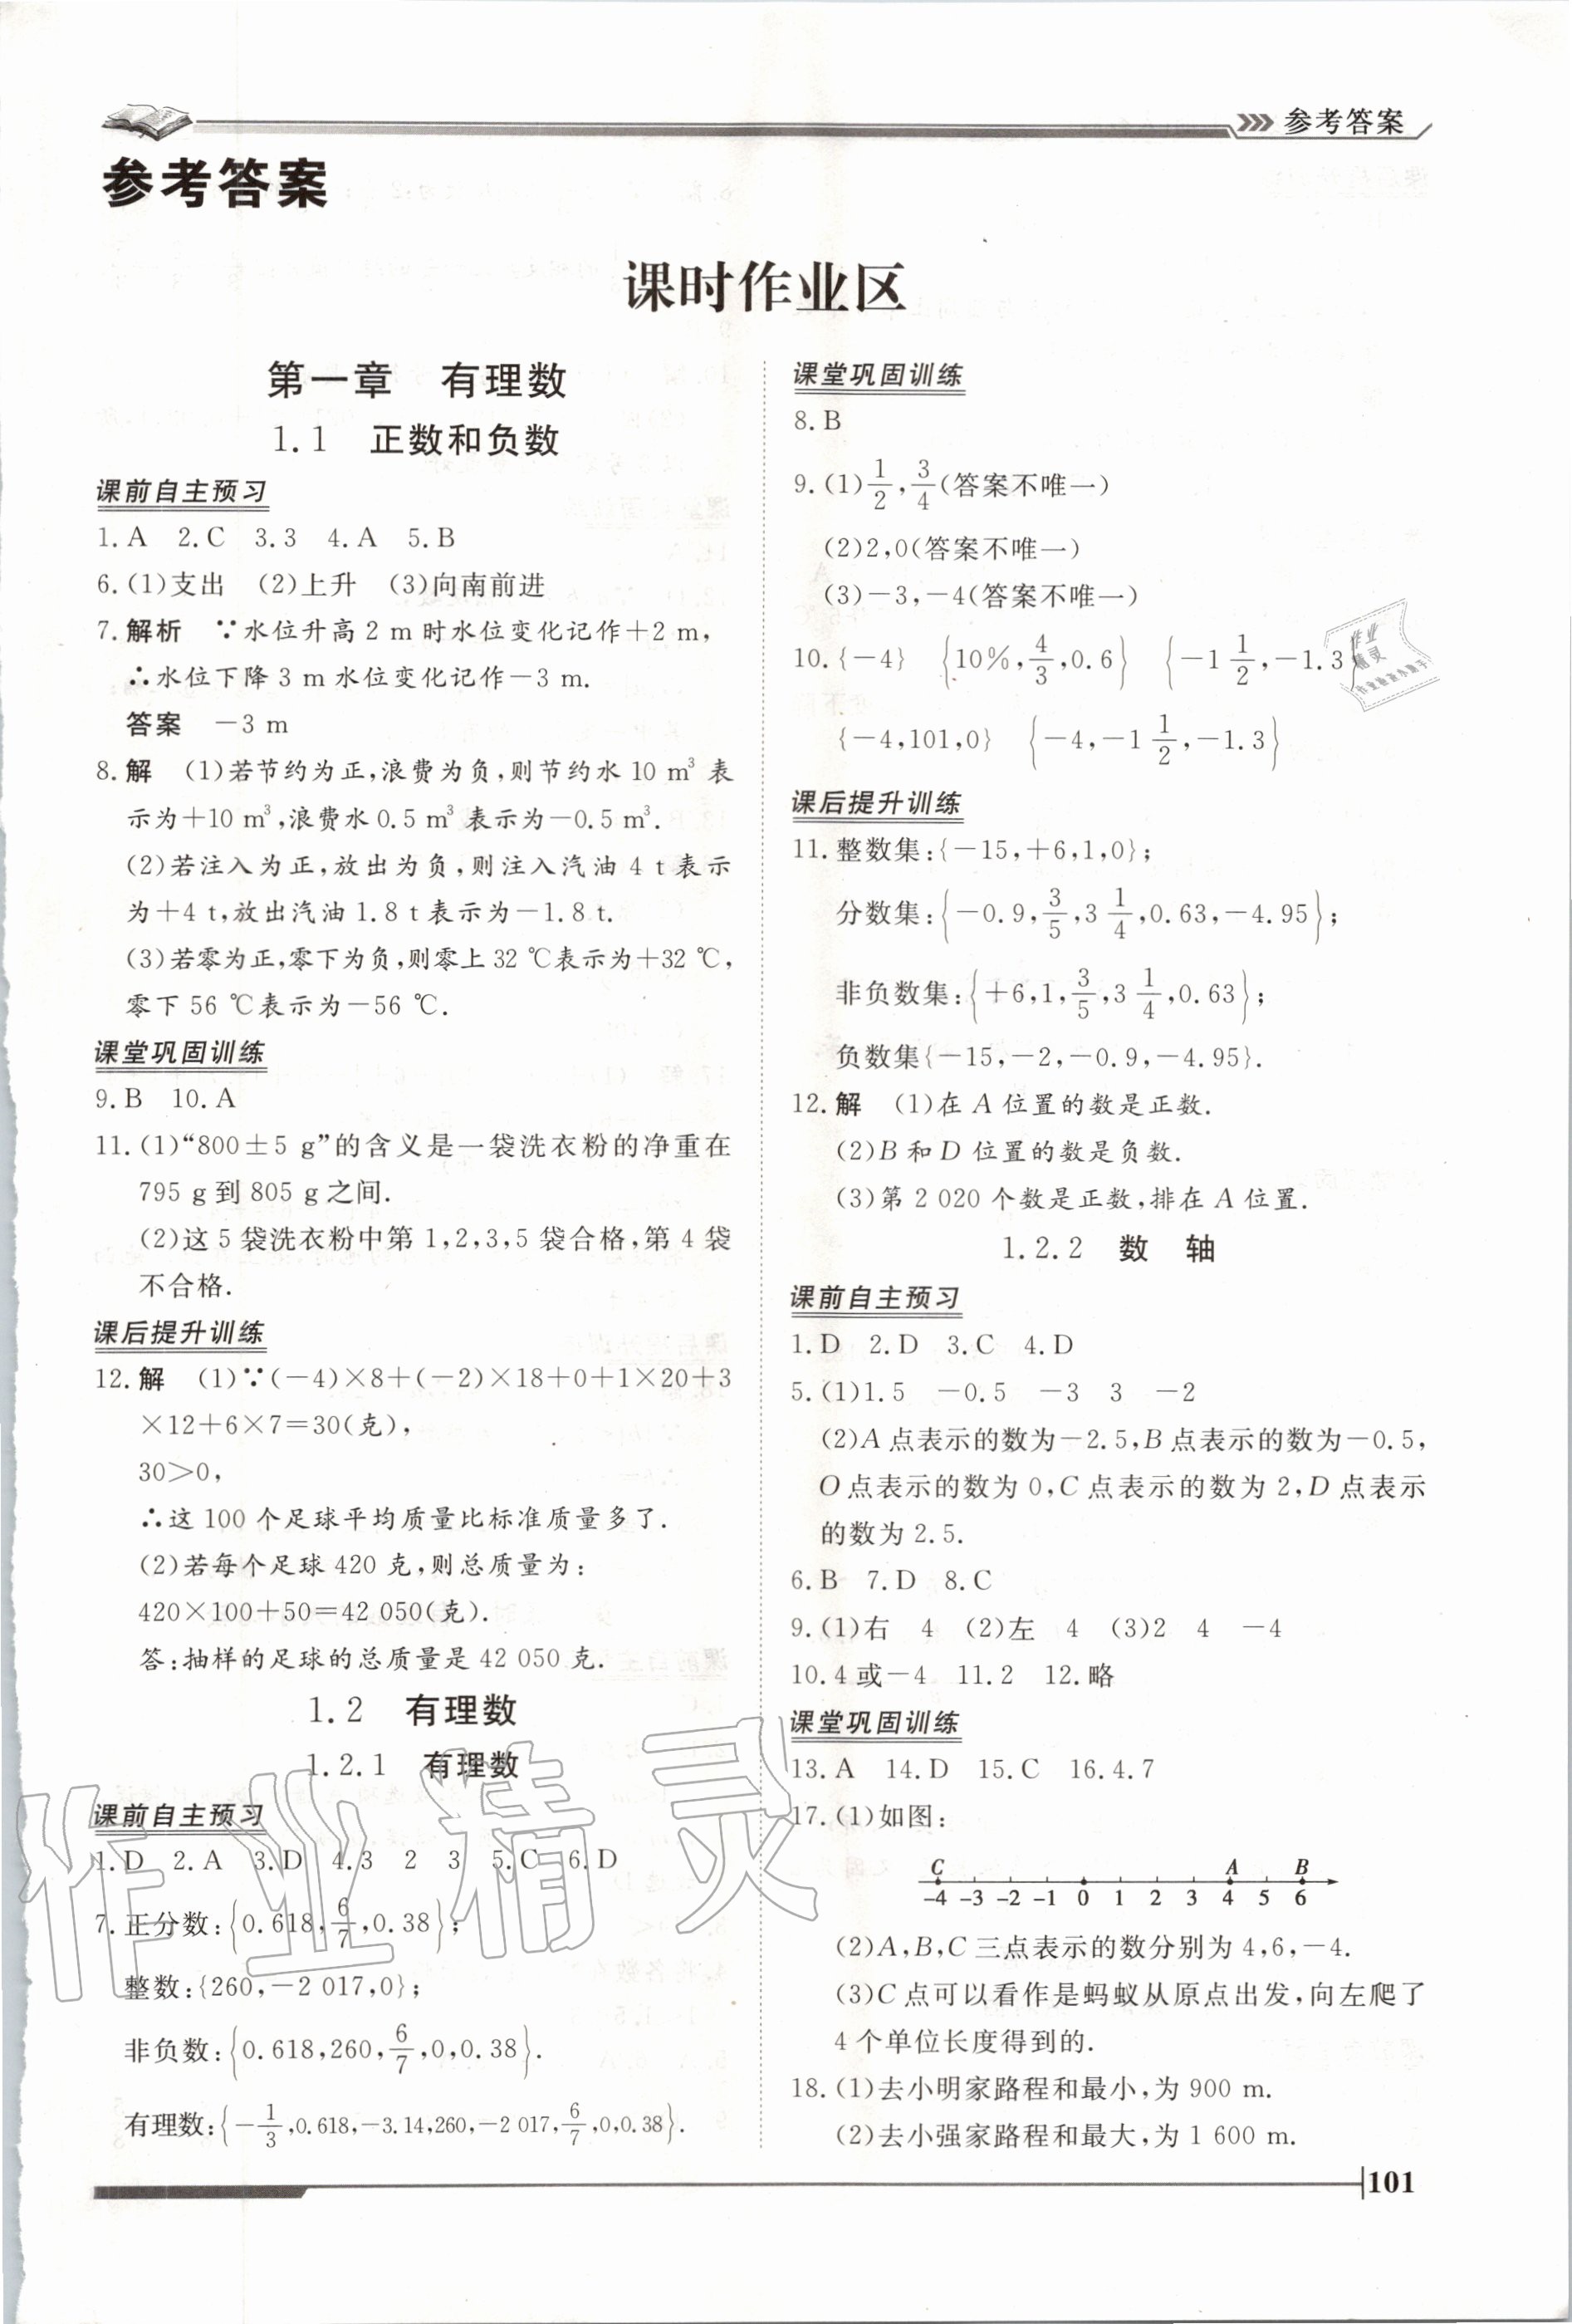 参考答案
参考答案
课时作业区
第一章 有理数
1.1 正数和负数
课前自主预习
1.A 2.C 3.3 4.A 5.B
6.(1)支出 (2)上升 (3)向南前进
7.解析 ∵水位升高2 m时水位变化记作+2 m,
∴水位下降3 m水位变化记作-3 m.
答案 -3 m
8.解 (1)若节约为正,浪费为负,则节约水10 m³表
示为+10 m³,浪费水0.5 m³表示为-0.5 m³.
(2)若注入为正,放出为负,则注入汽油4 t表示
为+4 t,放出汽油1.8 t表示为-1.8 t.
(3)若零为正,零下为负,则零上32 ℃表示为+32 ℃,
零下56 ℃表示为-56 ℃.
课堂巩固训练
9.B 10.A
11.(1)“800±5 g”的含义是一袋洗衣粉的净重在
795 g到805 g之间.
(2)这5袋洗衣粉中第1,2,3,5袋合格,第4袋
不合格.
课后提升训练
12.解 (1)∵(-4)×8+(-2)×18+0+1×20+3
×12+6×7=30(克),
30>0,
∴这100个足球平均质量比标准质量多了.
(2)若每个足球420克,则总质量为:
420×100+50=42 050(克).
答:抽样的足球的总质量是42 050克.
1.2 有理数
1.2.1 有理数
课前自主预习
1.D 2.A 3.D 4.3 2 3 5.C 6.D
7.正分数:{0.618,6/7,0.38};
整数:{260,-2 017,0};
非负数:{0.618,260,6/7,0,0.38}.
有理数:{-1/3,0.618,-3.14,260,-2 017,6/7,0,0.38}.
课堂巩固训练
8.B
9.(1)1/2,3/4(答案不唯一)
(2)2,0(答案不唯一)
(3)-3,-4(答案不唯一)
10.{-4} {10%,4/3,0.6} {-1 1/2,-1.3}
{-4,101,0} {-4,-1 1/2,-1.3}
课后提升训练
11.整数集:{-15,+6,1,0};
分数集:{-0.9,3/5,3 1/4,0.63,-4.95};
非负数集:{+6,1,3/5,3 1/4,0.63};
负数集{-15,-2,-0.9,-4.95}.
12.解 (1)在A位置的数是正数.
(2)B和D位置的数是负数.
(3)第2 020个数是正数,排在A位置.
1.2.2 数 轴
课前自主预习
1.D 2.D 3.C 4.D
5.(1)1.5 -0.5 -3 3 -2
(2)A点表示的数为-2.5,B点表示的数为-0.5,
O点表示的数为0,C点表示的数为2,D点表示
的数为2.5.
6.B 7.D 8.C
9.(1)右 4 (2)左 4 (3)2 4 -4
10.4或-4 11.2 12.略
课堂巩固训练
13.A 14.D 15.C 16.4.7
17.(1)如图:
C A B
-4 -3 -2 -1 0 1 2 3 4 5 6
(2)A,B,C三点表示的数分别为4,6,-4.
(3)C点可以看作是蚂蚁从原点出发,向左爬了
4个单位长度得到的.
18.(1)去小明家路程和最小,为900 m.
(2)去小强家路程和最大,为1 600 m.
101
作业精灵
作业
精灵